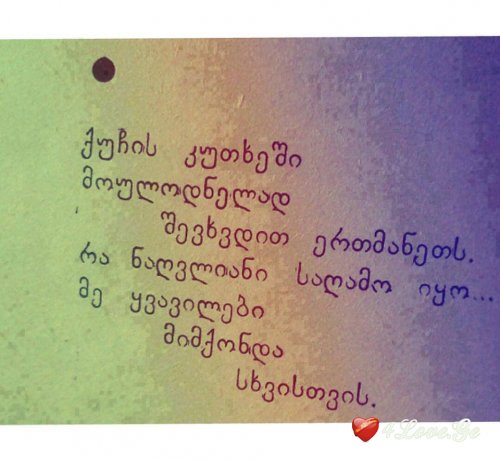 ქუჩის კუთხეში
მოულოდნელად
შევხვდით ერთმანეთს.
რა ნაღვლიანი საღამო იყო...
მე ყვავილები
მიმქონდა
სხვისთვის.
4Love.Ge